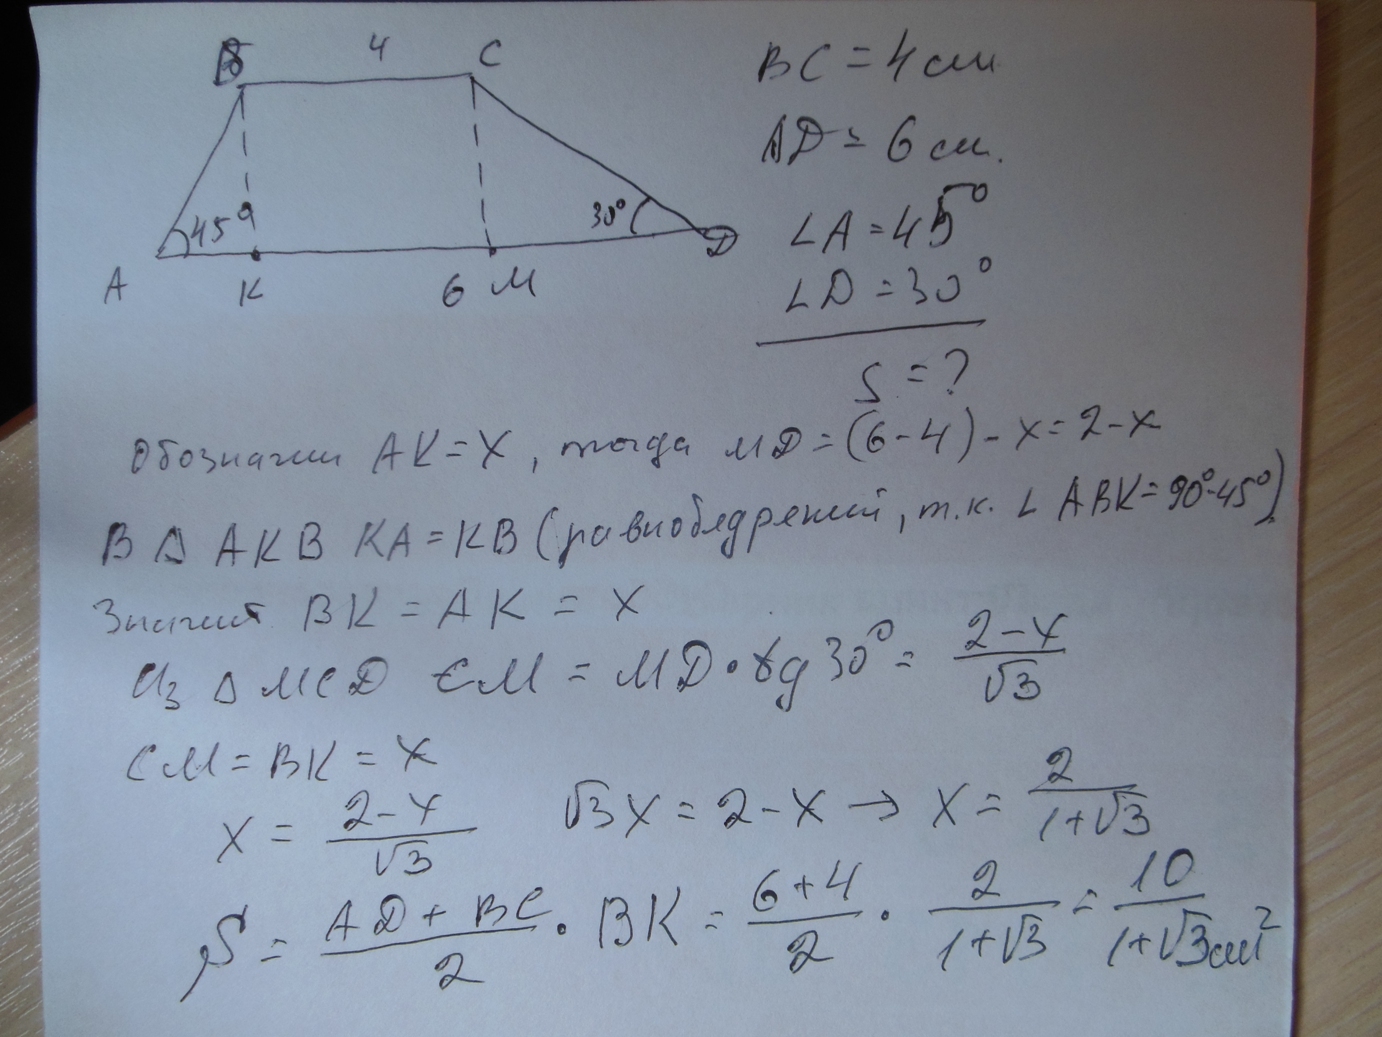 B 4 C
45°
30°
A K 6 M D
BC = 4 см
AD = 6 см.
∠A = 45°
∠D = 30°
S = ?
Обозначим AK = X, тогда MD = (6-4) - x = 2-x
В Δ AKB KA = KB (равнобедренный, т.к. ∠ABK = 90°-45°)
Значит BK = AK = X
Из Δ MCD CM = MD • tg 30° = \frac{2-x}{\sqrt{3}}
CM = BK = X
X = \frac{2-x}{\sqrt{3}} √3 X = 2 - X → X = \frac{2}{1+\sqrt{3}}
S = \frac{AD + BC}{2} • BK = \frac{6+4}{2} • \frac{2}{1+\sqrt{3}} = \frac{10}{1+\sqrt{3}} см²